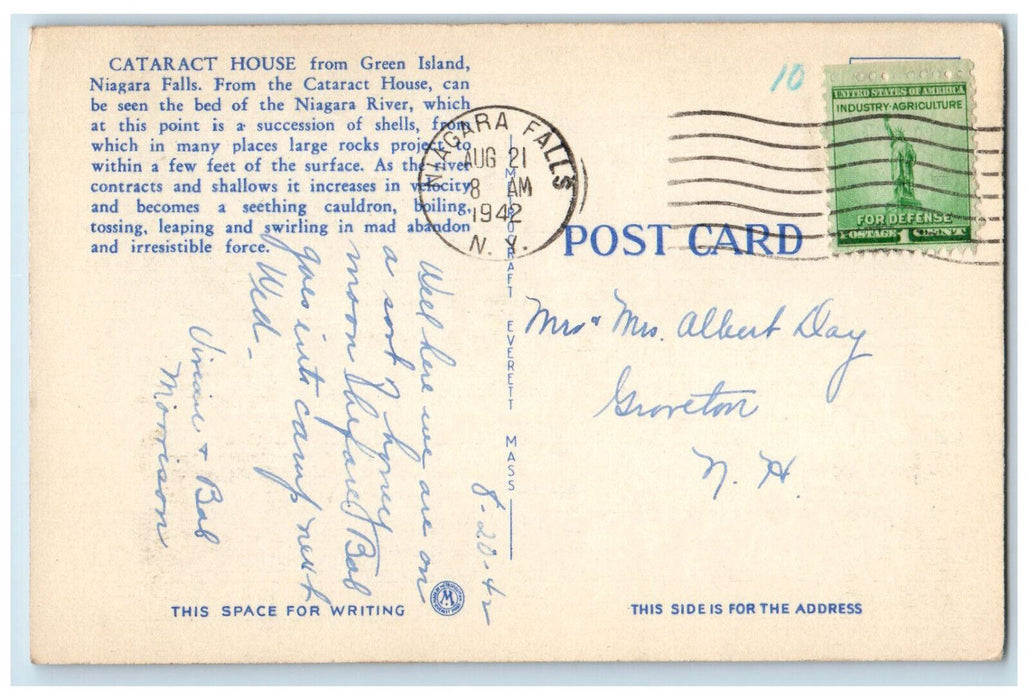 CATARACT HOUSE from Green Island,
Niagara Falls. From the Cataract House, can
be seen the bed of the Niagara River, which
at this point is a succession of shells, from
which in many places large rocks project to
within a few feet of the surface. As the river
contracts and shallows it increases in velocity
and becomes a seething cauldron, boiling,
tossing, leaping and swirling in mad abandon
and irresistible force.
8-20-42
Well here we are on
a sort of honey
moon before Bob
goes into camp next
Wed.
Vivian + Bob
Morrison
THIS SPACE FOR WRITING
M
METROCRAFT EVERETT MASS
NIAGARA FALLS
AUG 21
8 AM
1942
N. Y.
10
UNITED STATES OF AMERICA
INDUSTRY-AGRICULTURE
FOR DEFENSE
POSTAGE 1 CENT
POST CARD
Mr & Mrs. Albert Day
Groveton
N. H.
THIS SIDE IS FOR THE ADDRESS